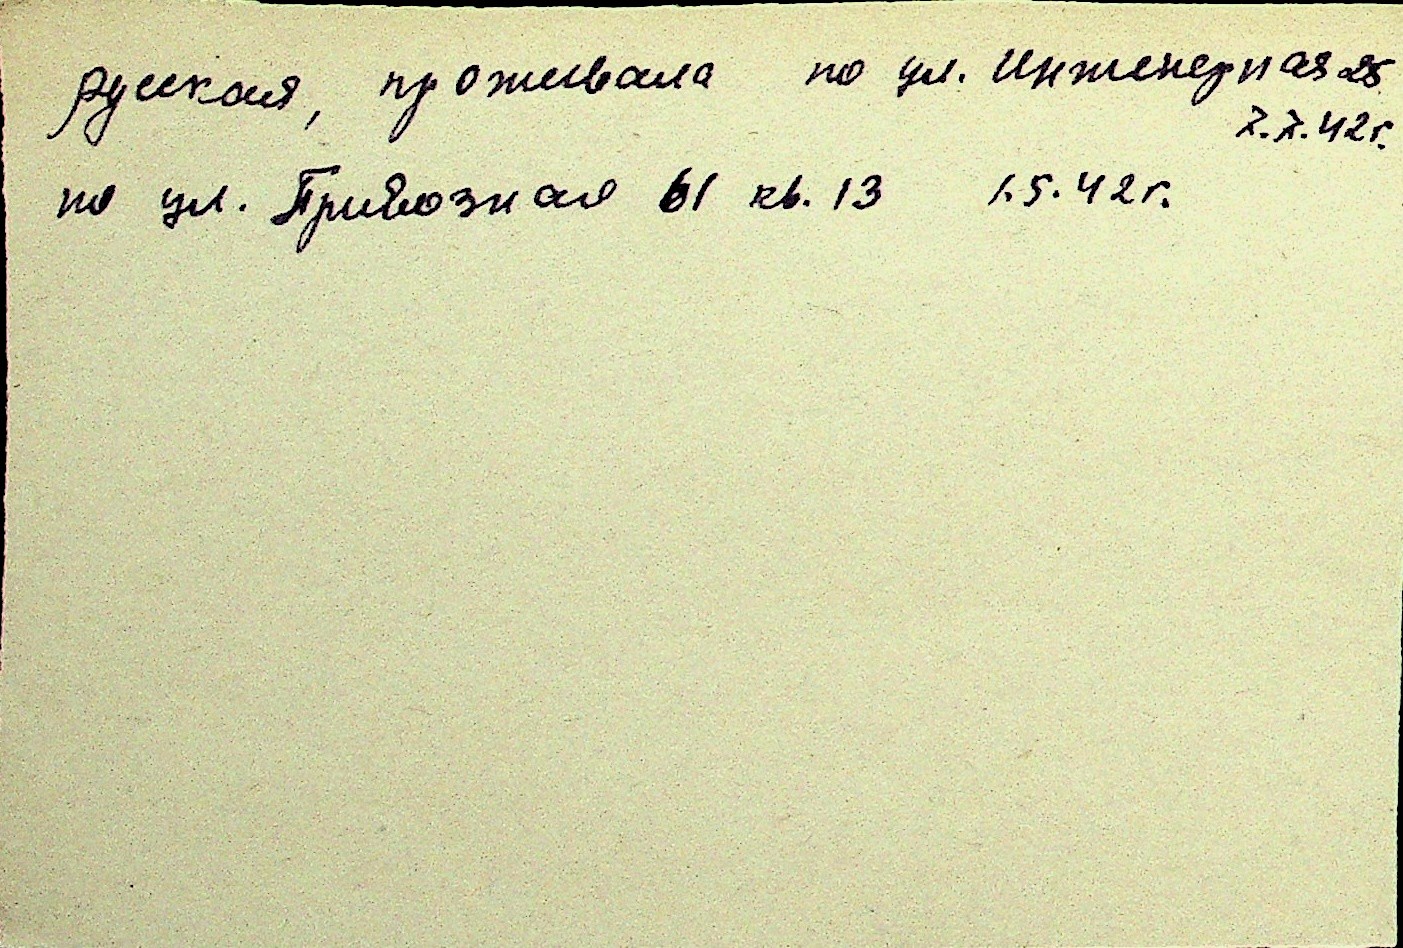 русская, проживала по ул. Инженерная 25
7.7.42г.
по ул. Привозная 61 кв. 13 1.5.42г.